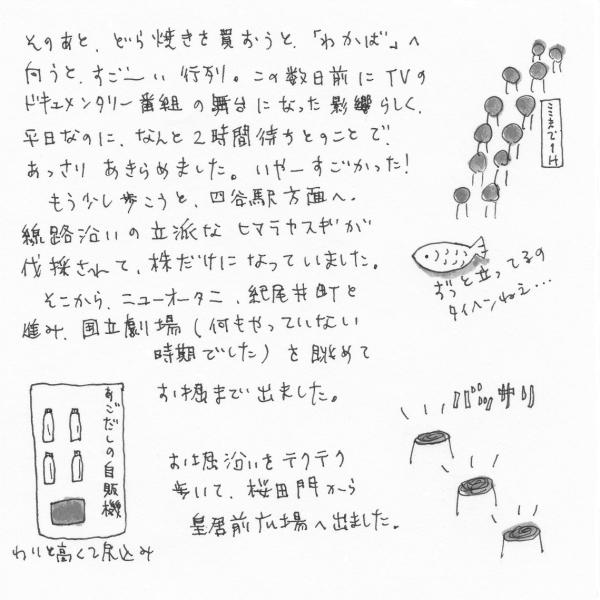 そのあと、どら焼きを買おうと、「わかば」へ
向うと、すご〜い行列。この数日前にTVの
ドキュメンタリー番組の舞台になった影響らしく、
平日なのに、なんと2時間待ちとのことで、
あっさりあきらめました。いやーすごかった!
もう少し歩こうと、四谷駅方面へ。
線路沿いの立派なヒマラヤスギが
伐採されて、株だけになっていました。
そこから、ニューオータニ、紀尾井町と
進み、国立劇場(何もやっていない
時期でした)を眺めて
お堀まで出ました。
お堀沿いをテクテク
歩いて、桜田門から
皇居前広場へ出ました。
ずっと立ってるの
タイヘンねえ…
バッサリ
あごだしの自販機
わりと高くて尻込み